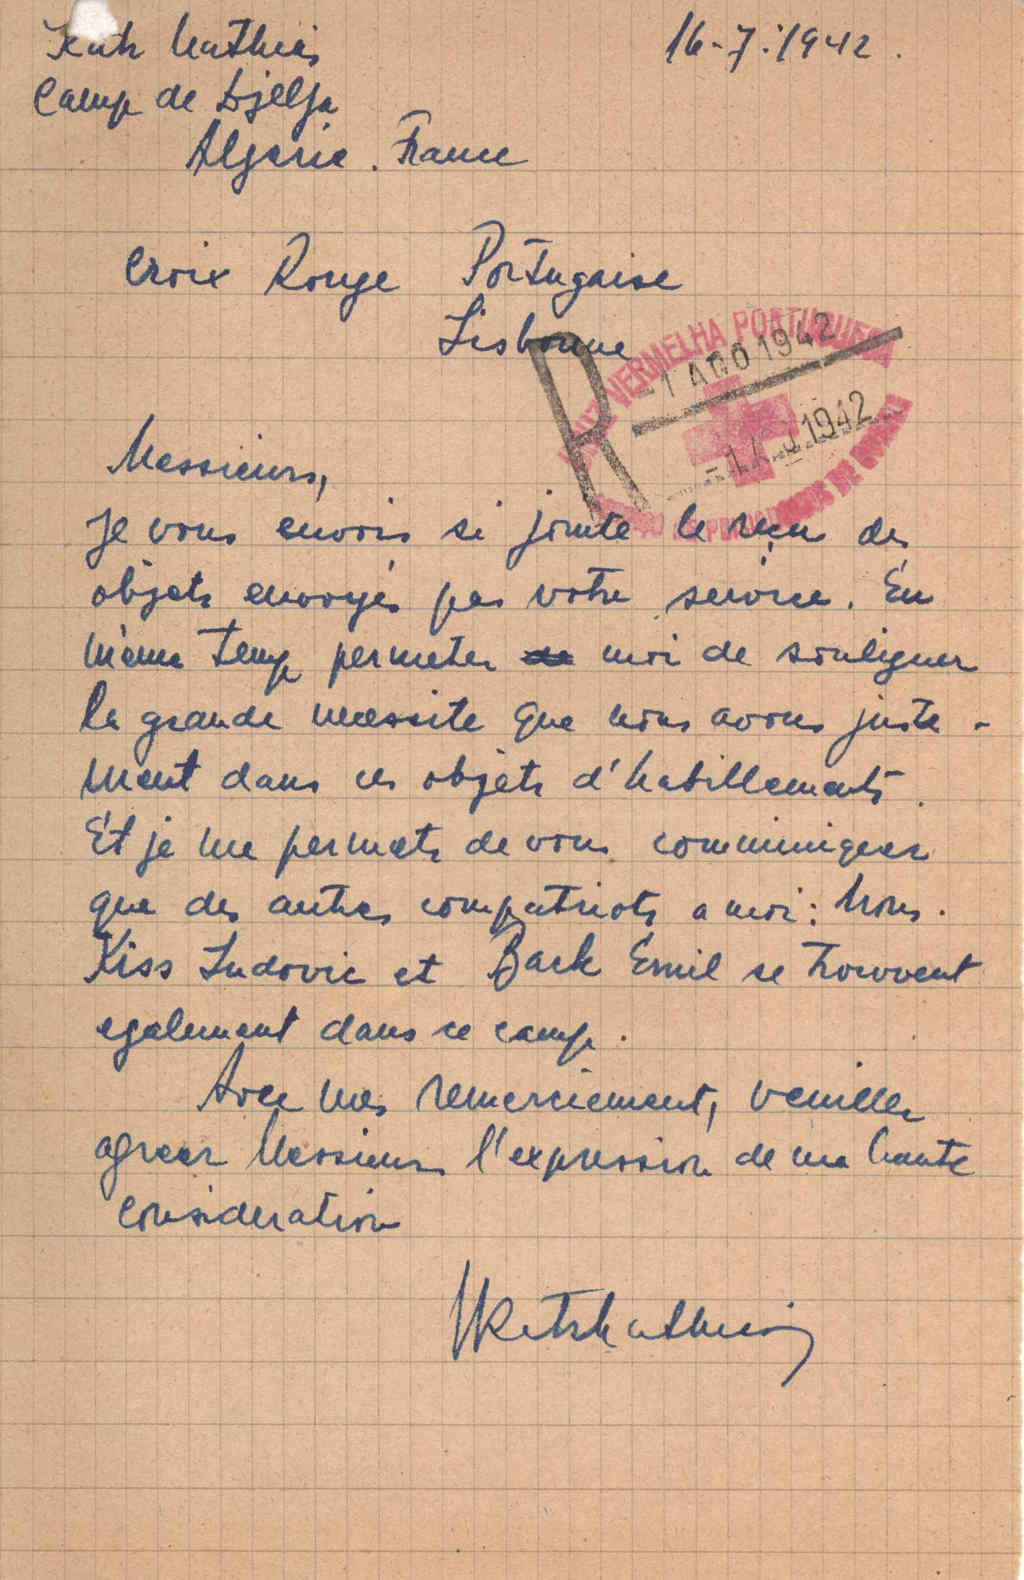 Katz Mathias 16-7-1942.
Camp de Djelfa
Algerie. France
Croix Rouge Portugaise
Lisbonne
CRUZ VERMELHA PORTUGUESA
R
-1 AGO 1942
-1 1942
DE GUERRA
Messieurs,
Je vous envois si jointe le reçus des
objets envoyés par votre service. En
même temp permeter moi de souligner
la grande necessite que nous avons juste-
ment dans ces objets d'habillements.
Et je me permets de vous comminiquer
que des autres compatriots a moi: Mons.
Kiss Ludovic et Back Emil se trouvent
egalement dans ce camp.
Avec mes remerciement, veuiller
agreer Messieurs l'expression de ma haute
consideration
Katz Mathias